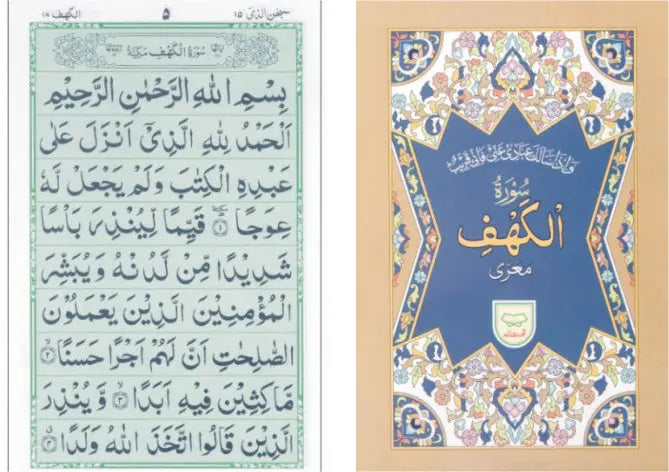 سبحٰن الذیٓ ١٥ ٥ الكهف ١٨
سُوْرَةُ الْكَهْفِ مَكِّيَّةٌ
بِسْمِ اللّٰهِ الرَّحْمٰنِ الرَّحِيْمِ
اَلْحَمْدُ لِلّٰهِ الَّذِيْٓ اَنْزَلَ عَلٰى
عَبْدِهِ الْكِتٰبَ وَلَمْ يَجْعَلْ لَّهٗ
عِوَجًا ۜ ١ قَيِّمًا لِّيُنْذِرَ بَاْسًا
شَدِيْدًا مِّنْ لَّدُنْهُ وَيُبَشِّرَ
الْمُؤْمِنِيْنَ الَّذِيْنَ يَعْمَلُوْنَ
الصّٰلِحٰتِ اَنَّ لَهُمْ اَجْرًا حَسَنًا ٢
مَّاكِثِيْنَ فِيْهِ اَبَدًا ٣ وَّيُنْذِرَ
الَّذِيْنَ قَالُوا اتَّخَذَ اللّٰهُ وَلَدًا ٤
وَاِذَا سَاَلَكَ عِبَادِيْ عَنِّيْ فَاِنِّيْ قَرِيْبٌ
سُوْرَةُ
الْكَهْفِ
معرّٰى